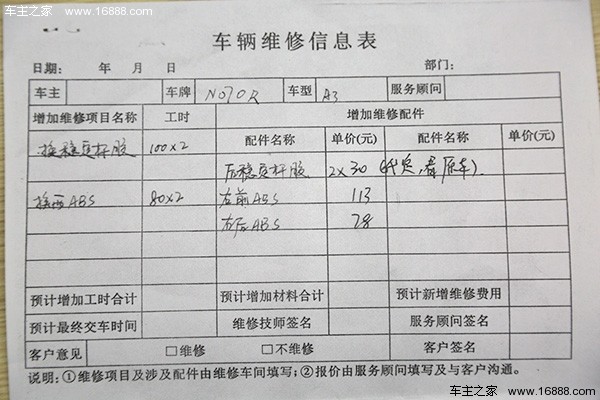 车主之家 www.16888.com
车辆维修信息表
日期： 年 月 日 部门：
车主 车牌 N070R 车型 A3 服务顾问
增加维修项目名称 工时 增加维修配件
配件名称 单价(元) 配件名称 单价(元)
换稳定杆胶 100×2
后稳定杆胶 2×30 (代定,看原车)
ABS 80×2 左前ABS 113
右后ABS 78
预计增加工时合计 预计增加材料合计 预计新增维修费用
预计最终交车时间 维修技师签名 服务顾问签名
客户意见 □维修 □不维修 客户签名
说明：①维修项目及涉及配件由维修车间填写；②报价由服务顾问填写及与客户沟通。
车主之家 www.16888.com